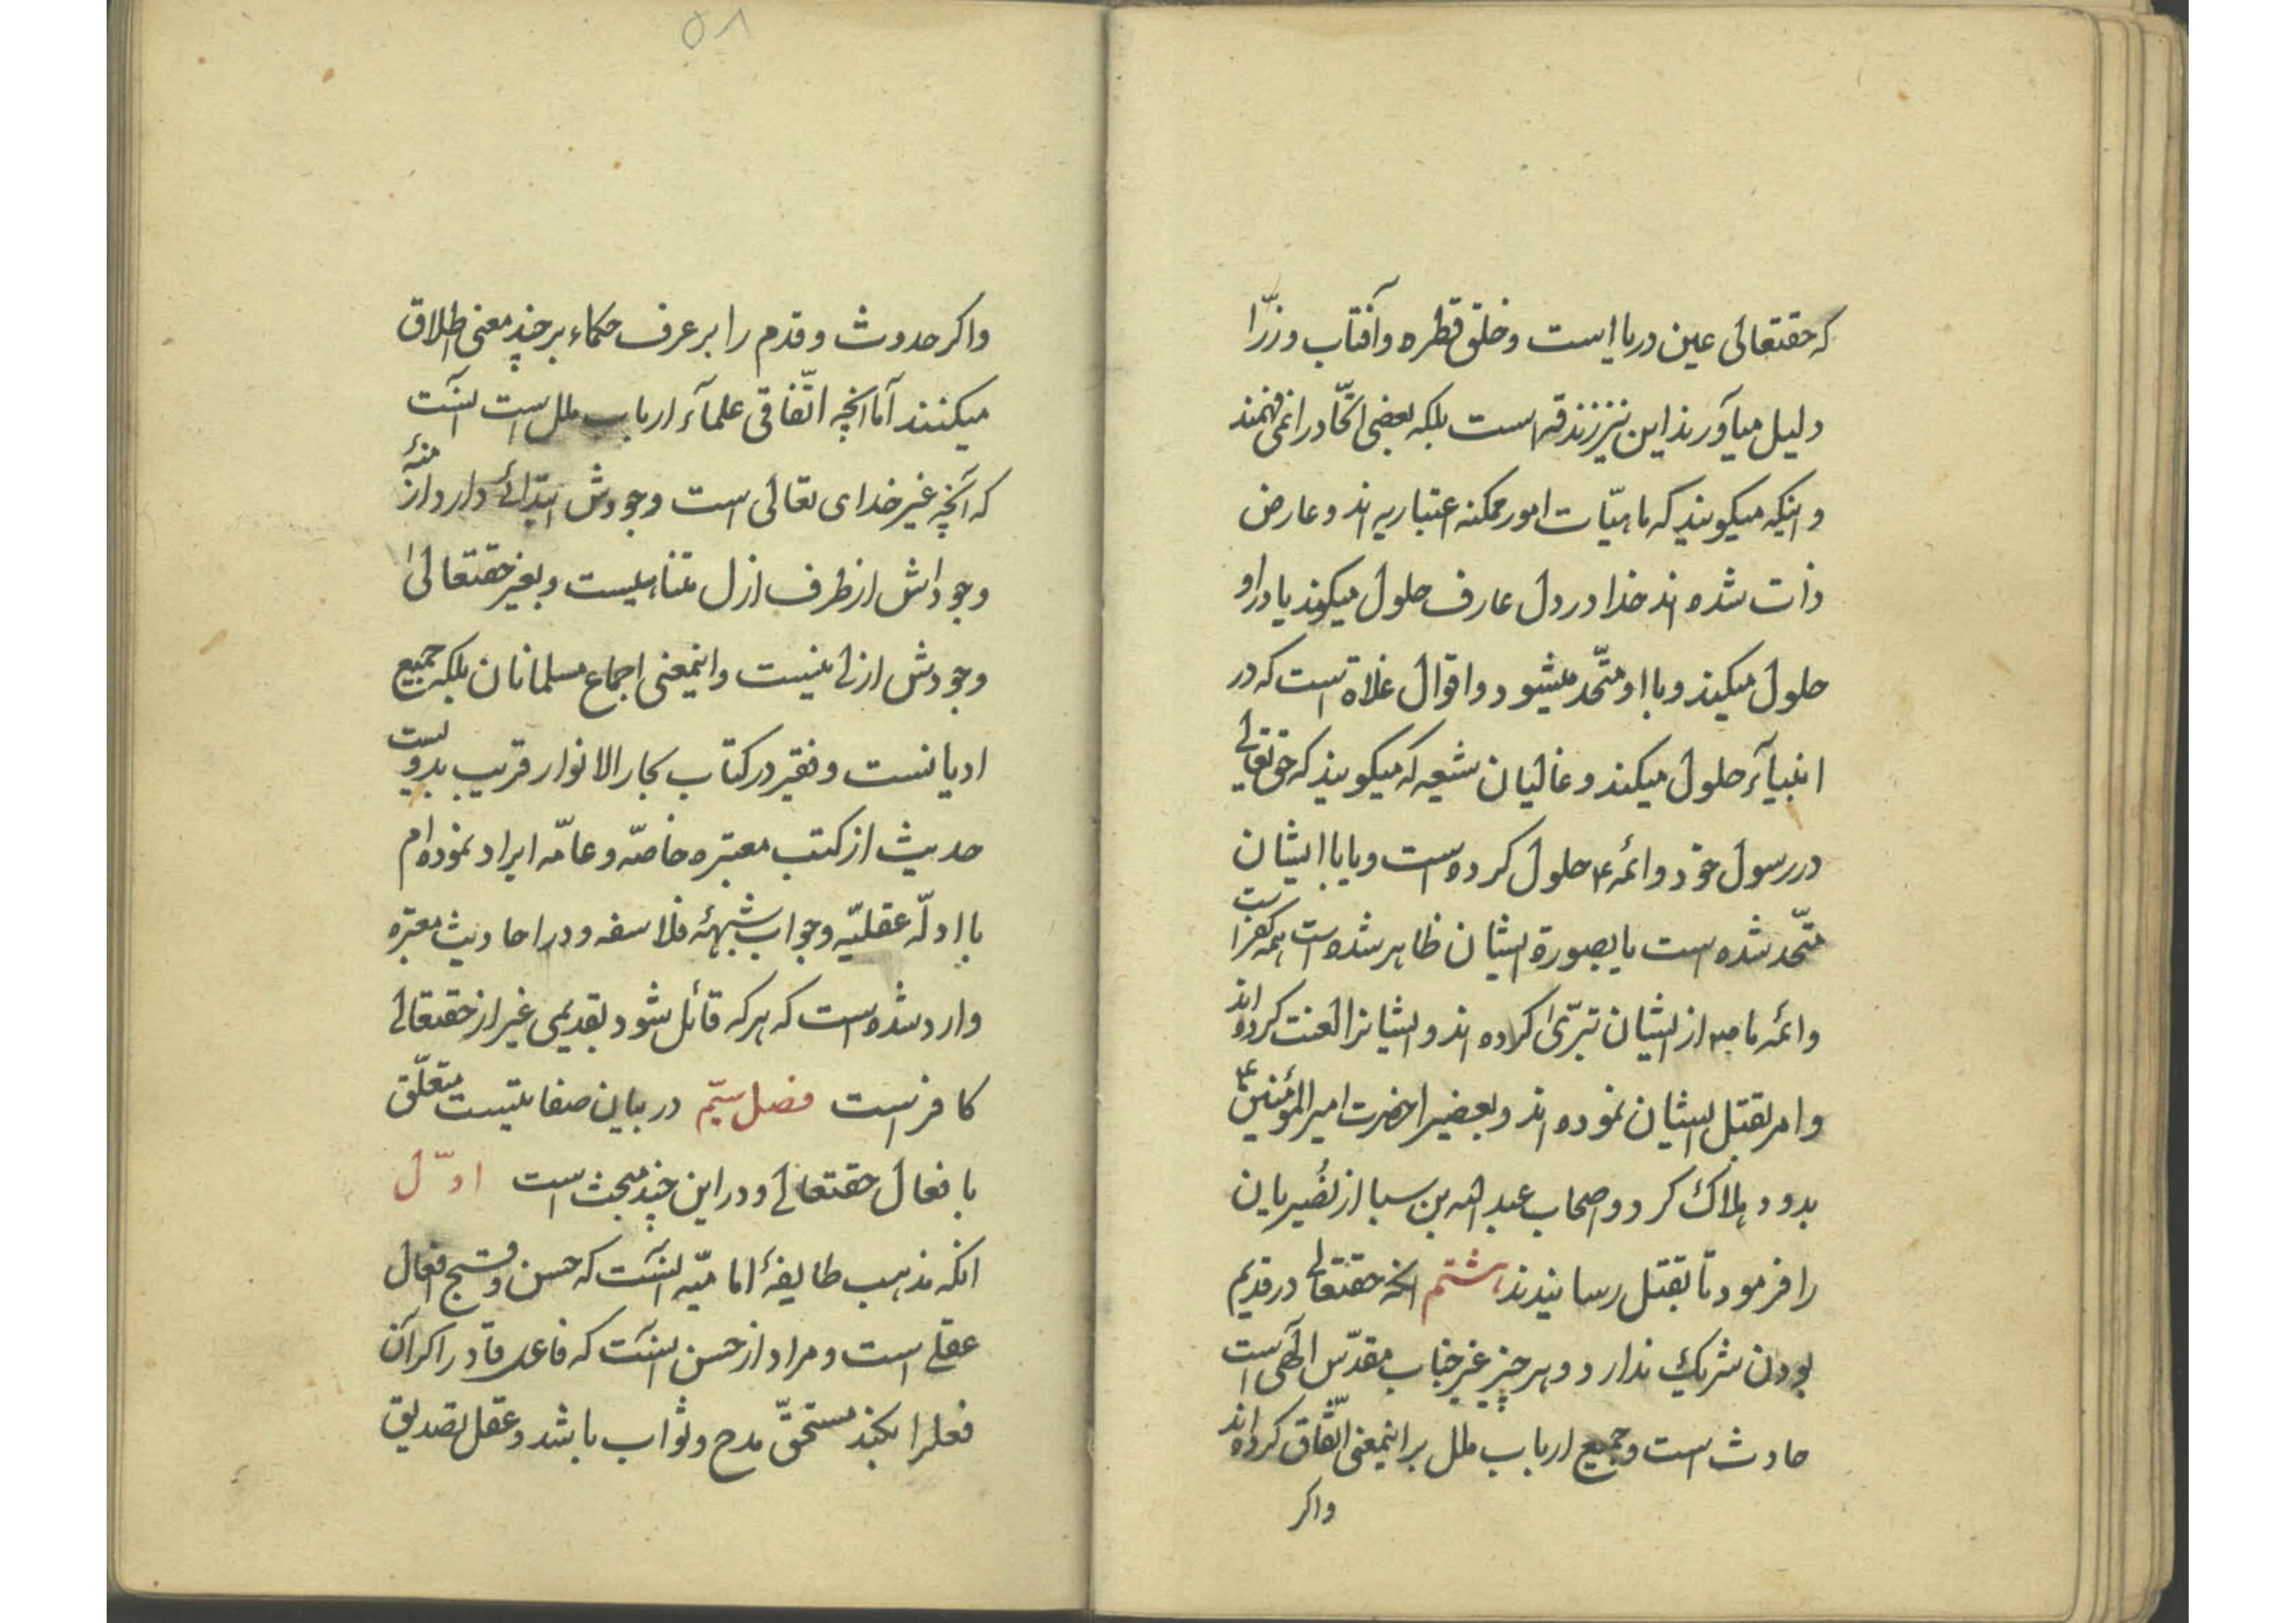 که حقتعالی عین دریا است و خلق قطره و آفتاب و زرّا
دلیل میآورند این نیز زندقه است بلکه بعضی اتّحاد را نمی فهمند
و اینکه میکویند که ماهیّات امور ممکنه اعتباریه اند و عارض
ذات شده اند خدا در دل عارف حلول میکند یا در او
حلول میکند و با او متّحد میشود و اقوال غلاة است که در
انبیآء حلول میکند و غالیان شیعه که میکویند که حق تعالی
در رسول خود و ائمه ع حلول کرده است و یا با ایشان
متّحد شده است یا بصورة ایشان ظاهر شده است همه کفر است
و ائمه ما ص از ایشان تبرّی کرده اند و ایشانرا لعنت کرده اند
و امر بقتل ایشان نموده اند و بعضیرا حضرت امیر المؤمنین ع
بدود هلاک کرد و اصحاب عبد الله بن سبا از نُصَیریان
را فرمود تا بقتل رسانیدند هشتم انکه حقتعالی در قدیم
بودن شریک ندارد و هر چیز غیر جناب مقدّس الٓهی است
حادث است و جمیع ارباب ملل بر اینمعنی اتّفاق کرده اند
واکر
۵۸
واکر حدوث و قدم را بر عرف حکماء بر چند معنی اطلاق
میکنند آما انچه اتّفاقی علمآء ارباب ملل است اینست
که آنچه غیر خدای تعالی است وجودش ابتدائی دارد ازمنهٔ
وجوداش از طرف ازل متناهیست و بغیر حقتعالی
وجودش ازلی نیست و اینمعنی اجماع مسلمانان بلکه جمیع
ادیانست و فقیر در کتاب بحار الانوار قریب بدویست
حدیث از کتب معتبره خاصّه و عامّه ایراد نموده ام
با ادلّه عقلیّه و جواب شبهئه فلاسفه و در احادیث معتبره
وارد شده است که هر که قائل شود بقدیمی غیر از حقتعالی
کافر است فصل سیّم در بیان صفاتیست متعلّق
بافعال حقتعالی و در این چند مبحث است اوّل
انکه مذهب طایفهٔ امامیّه اینست که حسن و قبح افعال
عقلی است و مراد از حسن اینست که فاعل قادر اکر آن
فعلرا بکند مستحقّ مدح و ثواب باشد و عقل تصدیق